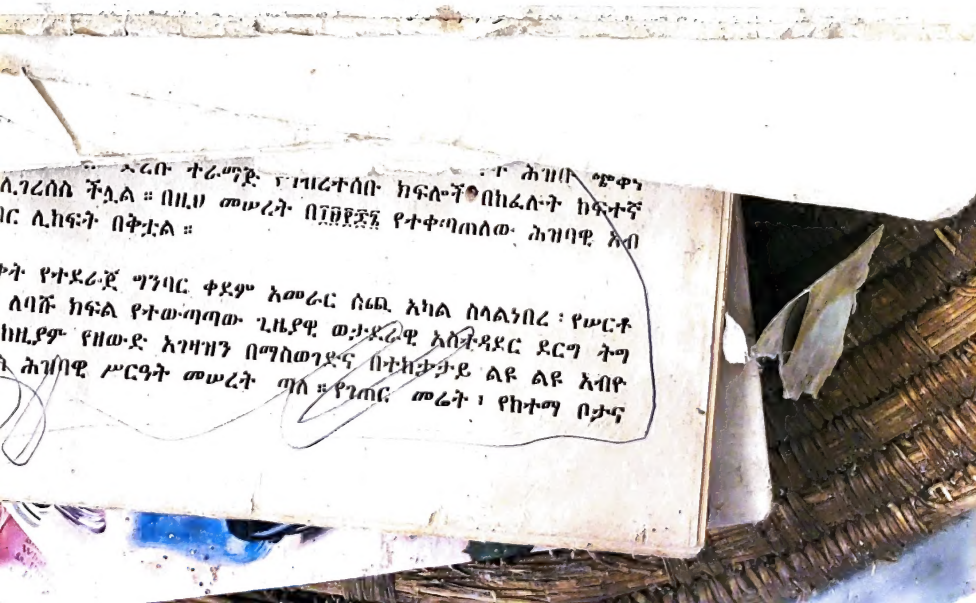 ተራማጅ የኅብረተሰቡ ክፍሎች በከፈሉት ከፍተኛ
ሊገረሰስ ችሏል ። በዚህ መሠረት በ፲፱፻፷፯ የተቀጣጠለው ሕዝባዊ አብ
በር ሊከፍት በቅቷል ።
የተደራጀ ግንባር ቀደም አመራር ሰጪ አካል ስላልነበረ ፡ የሠርቶ
ለባሹ ክፍል የተውጣጣው ጊዜያዊ ወታደራዊ አስተዳደር ደርግ ትግ
ከዚያም የዘውድ አገዛዝን በማስወገድና በተከታታይ ልዩ ልዩ አብዮ
ሕዝባዊ ሥርዓት መሠረት ጣለ ። የገጠር መሬት ፣ የከተማ ቦታና